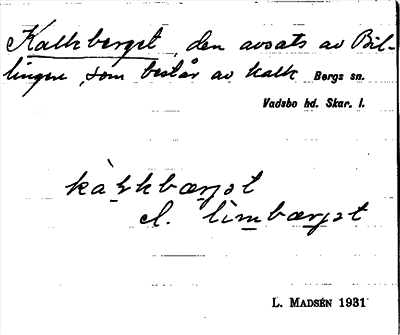 Kalkberget, den avsats av Bil-
lingen, som består av kalk Bergs sn.
Vadsbo hd. Skar. l.
kàlkbærjət
el. lìmbærjət
L. MADSÉN 1931